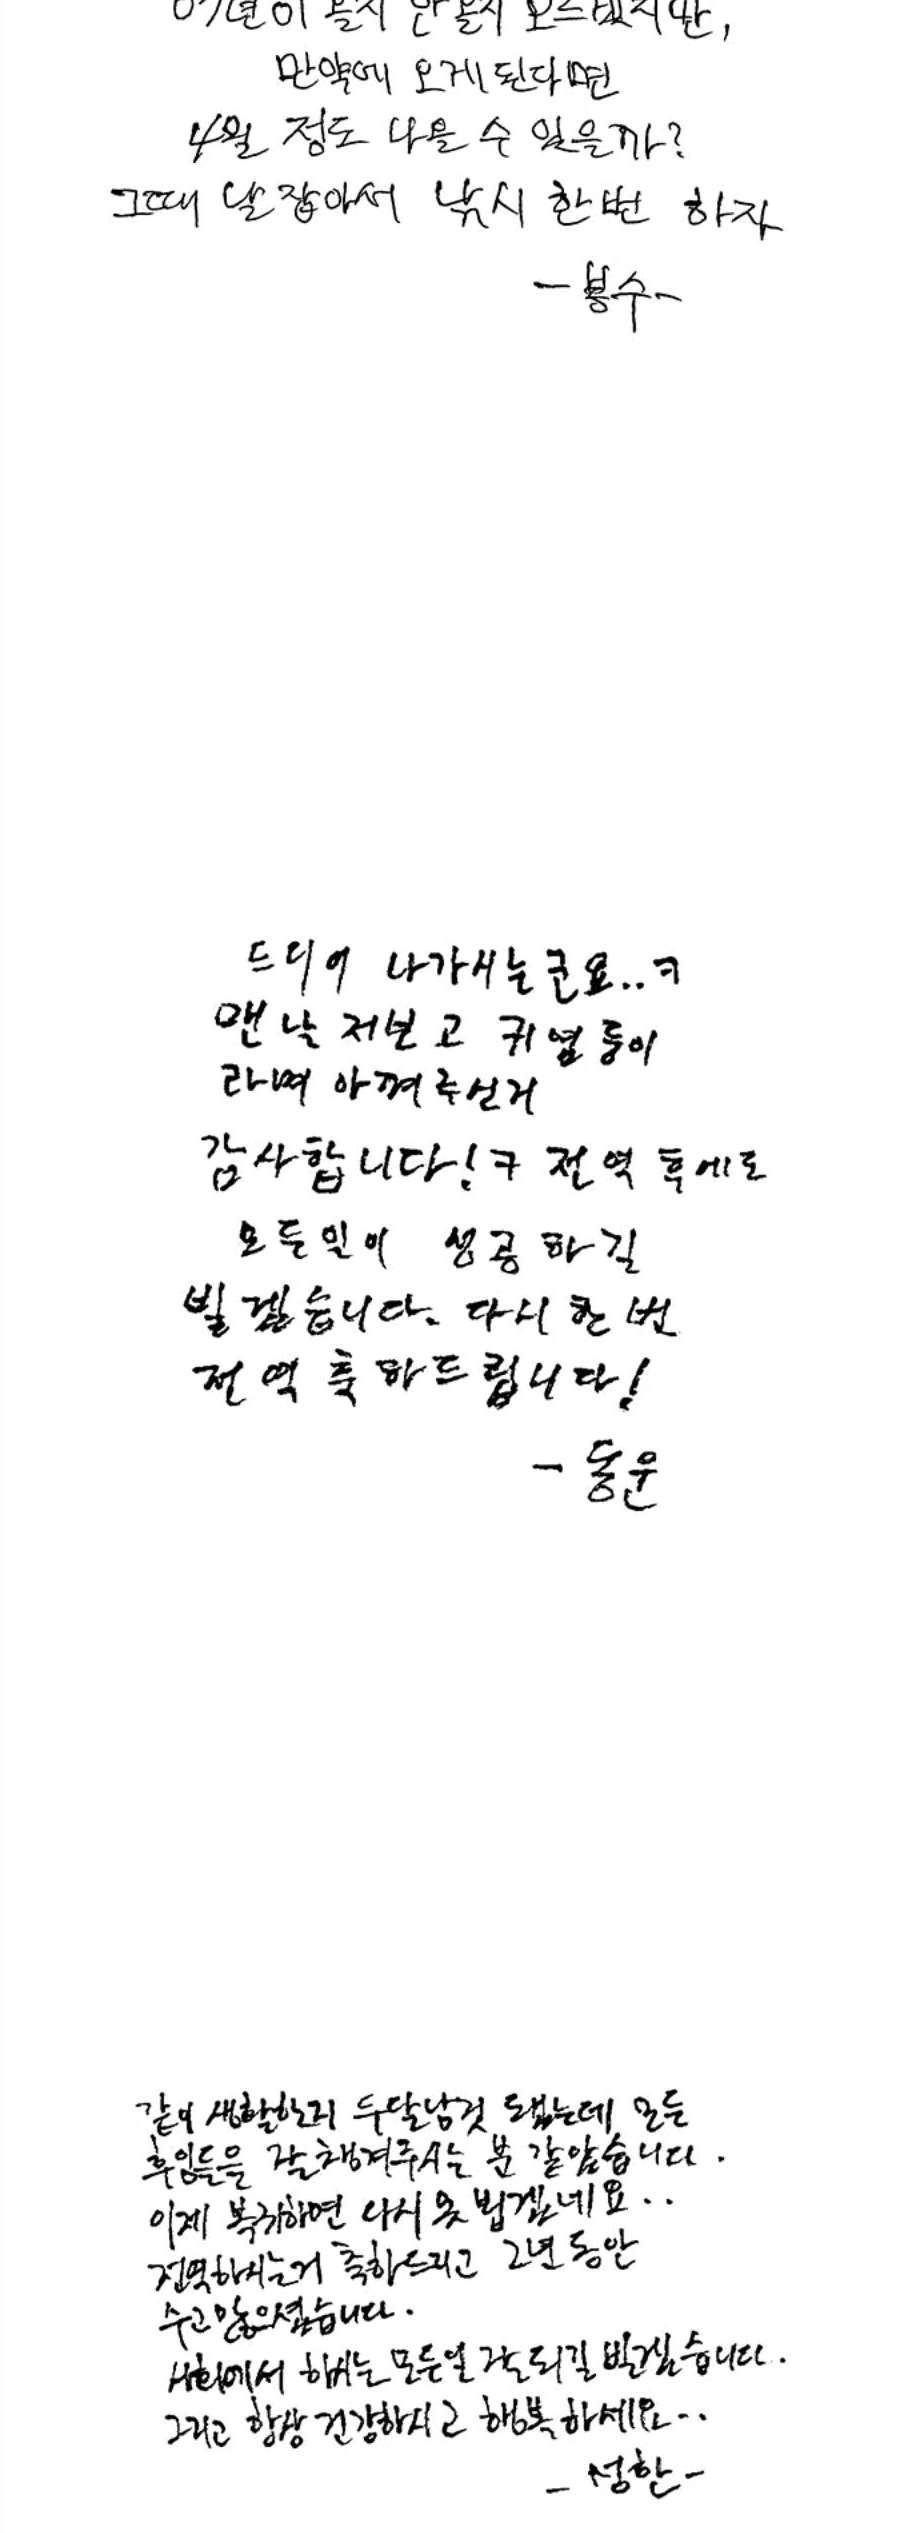 07년이 올지 안 올지 모르겠지만,
만약에 오게 된다면
4월 정도 나올 수 있을까?
그때 날 잡아서 낚시 한번 하자
-봉수-
드디어 나가시는군요..ㅋ
맨날 저보고 귀염둥이
라며 아껴주신거
감사합니다!ㅋ 전역 후에도
모든일이 성공하길
빌겠습니다. 다시 한번
전역 축하드립니다!
- 동운
같이 생활한지 두달남짓 됐는데 모든
후임들을 잘 챙겨주시는 분 같았습니다.
이제 복귀하면 다시 못 뵙겠네요..
전역하시는거 축하드리고 2년 동안
수고많으셨습니다.
사회에서 하시는 모든일 잘되길 빌겠습니다.
그리고 항상 건강하시고 행복하세요..
- 성한 -